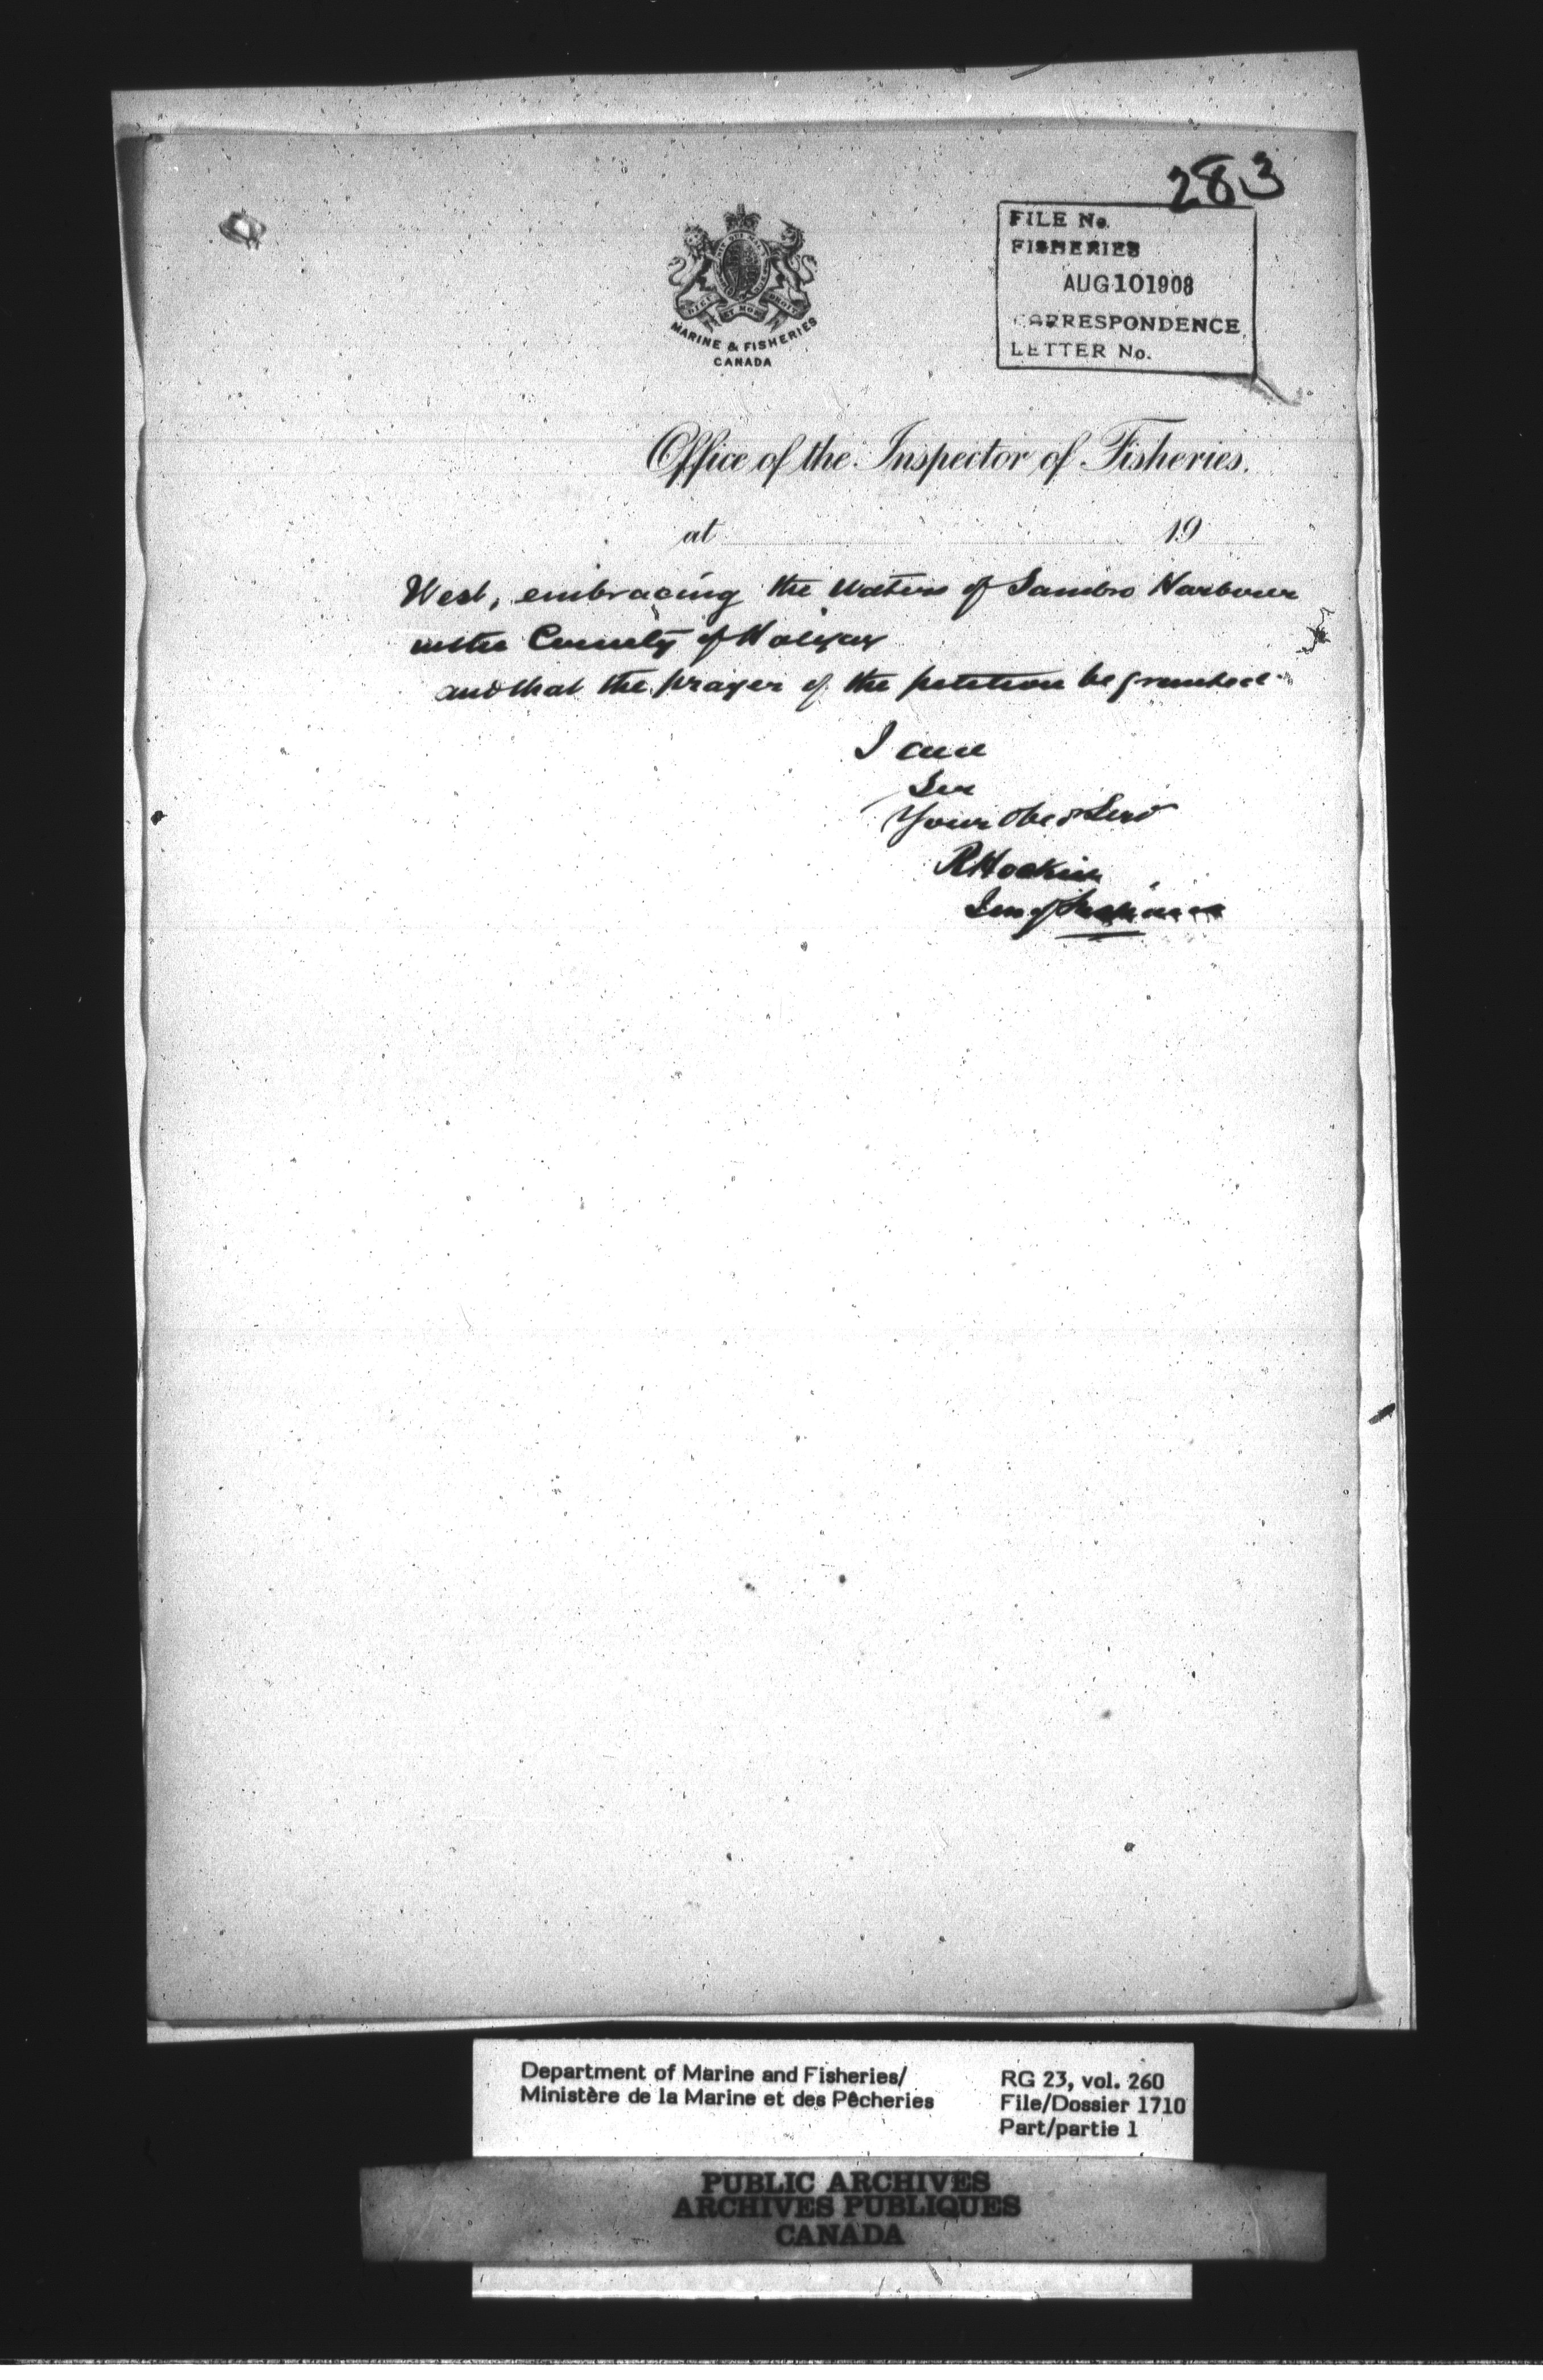 283
FILE No.
FISHERIES
AUG 10 1908
CORRESPONDENCE
LETTER No.
MARINE & FISHERIES
CANADA
Office of the Inspector of Fisheries.
at 19
West, embracing the waters of Sambro Harbour
in the County of Halifax
and that the prayer of the petition be granted.
I am
Sir
Your Obed Serv
R Hockin
Ins of Fisheries
Department of Marine and Fisheries/
Ministère de la Marine et des Pêcheries
RG 23, vol. 260
File/Dossier 1710
Part/partie 1
PUBLIC ARCHIVES
ARCHIVES PUBLIQUES
CANADA